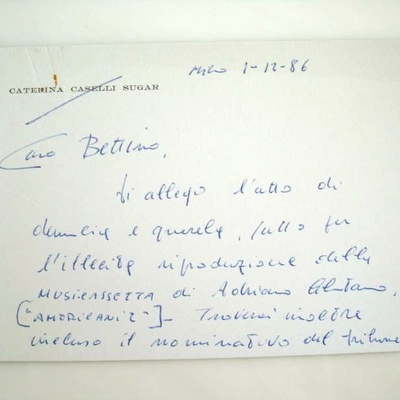 Milo 1-12-86
CATERINA CASELLI SUGAR
Caro Bettino,
Ti allego l'atto di
denuncia e querela, fatto per
l'illecita riproduzione della
MUSICASSETTA di Adriano Celentano,
["AMERICANIZ"]- Troverai inoltre
incluso il nominativo del tribuna